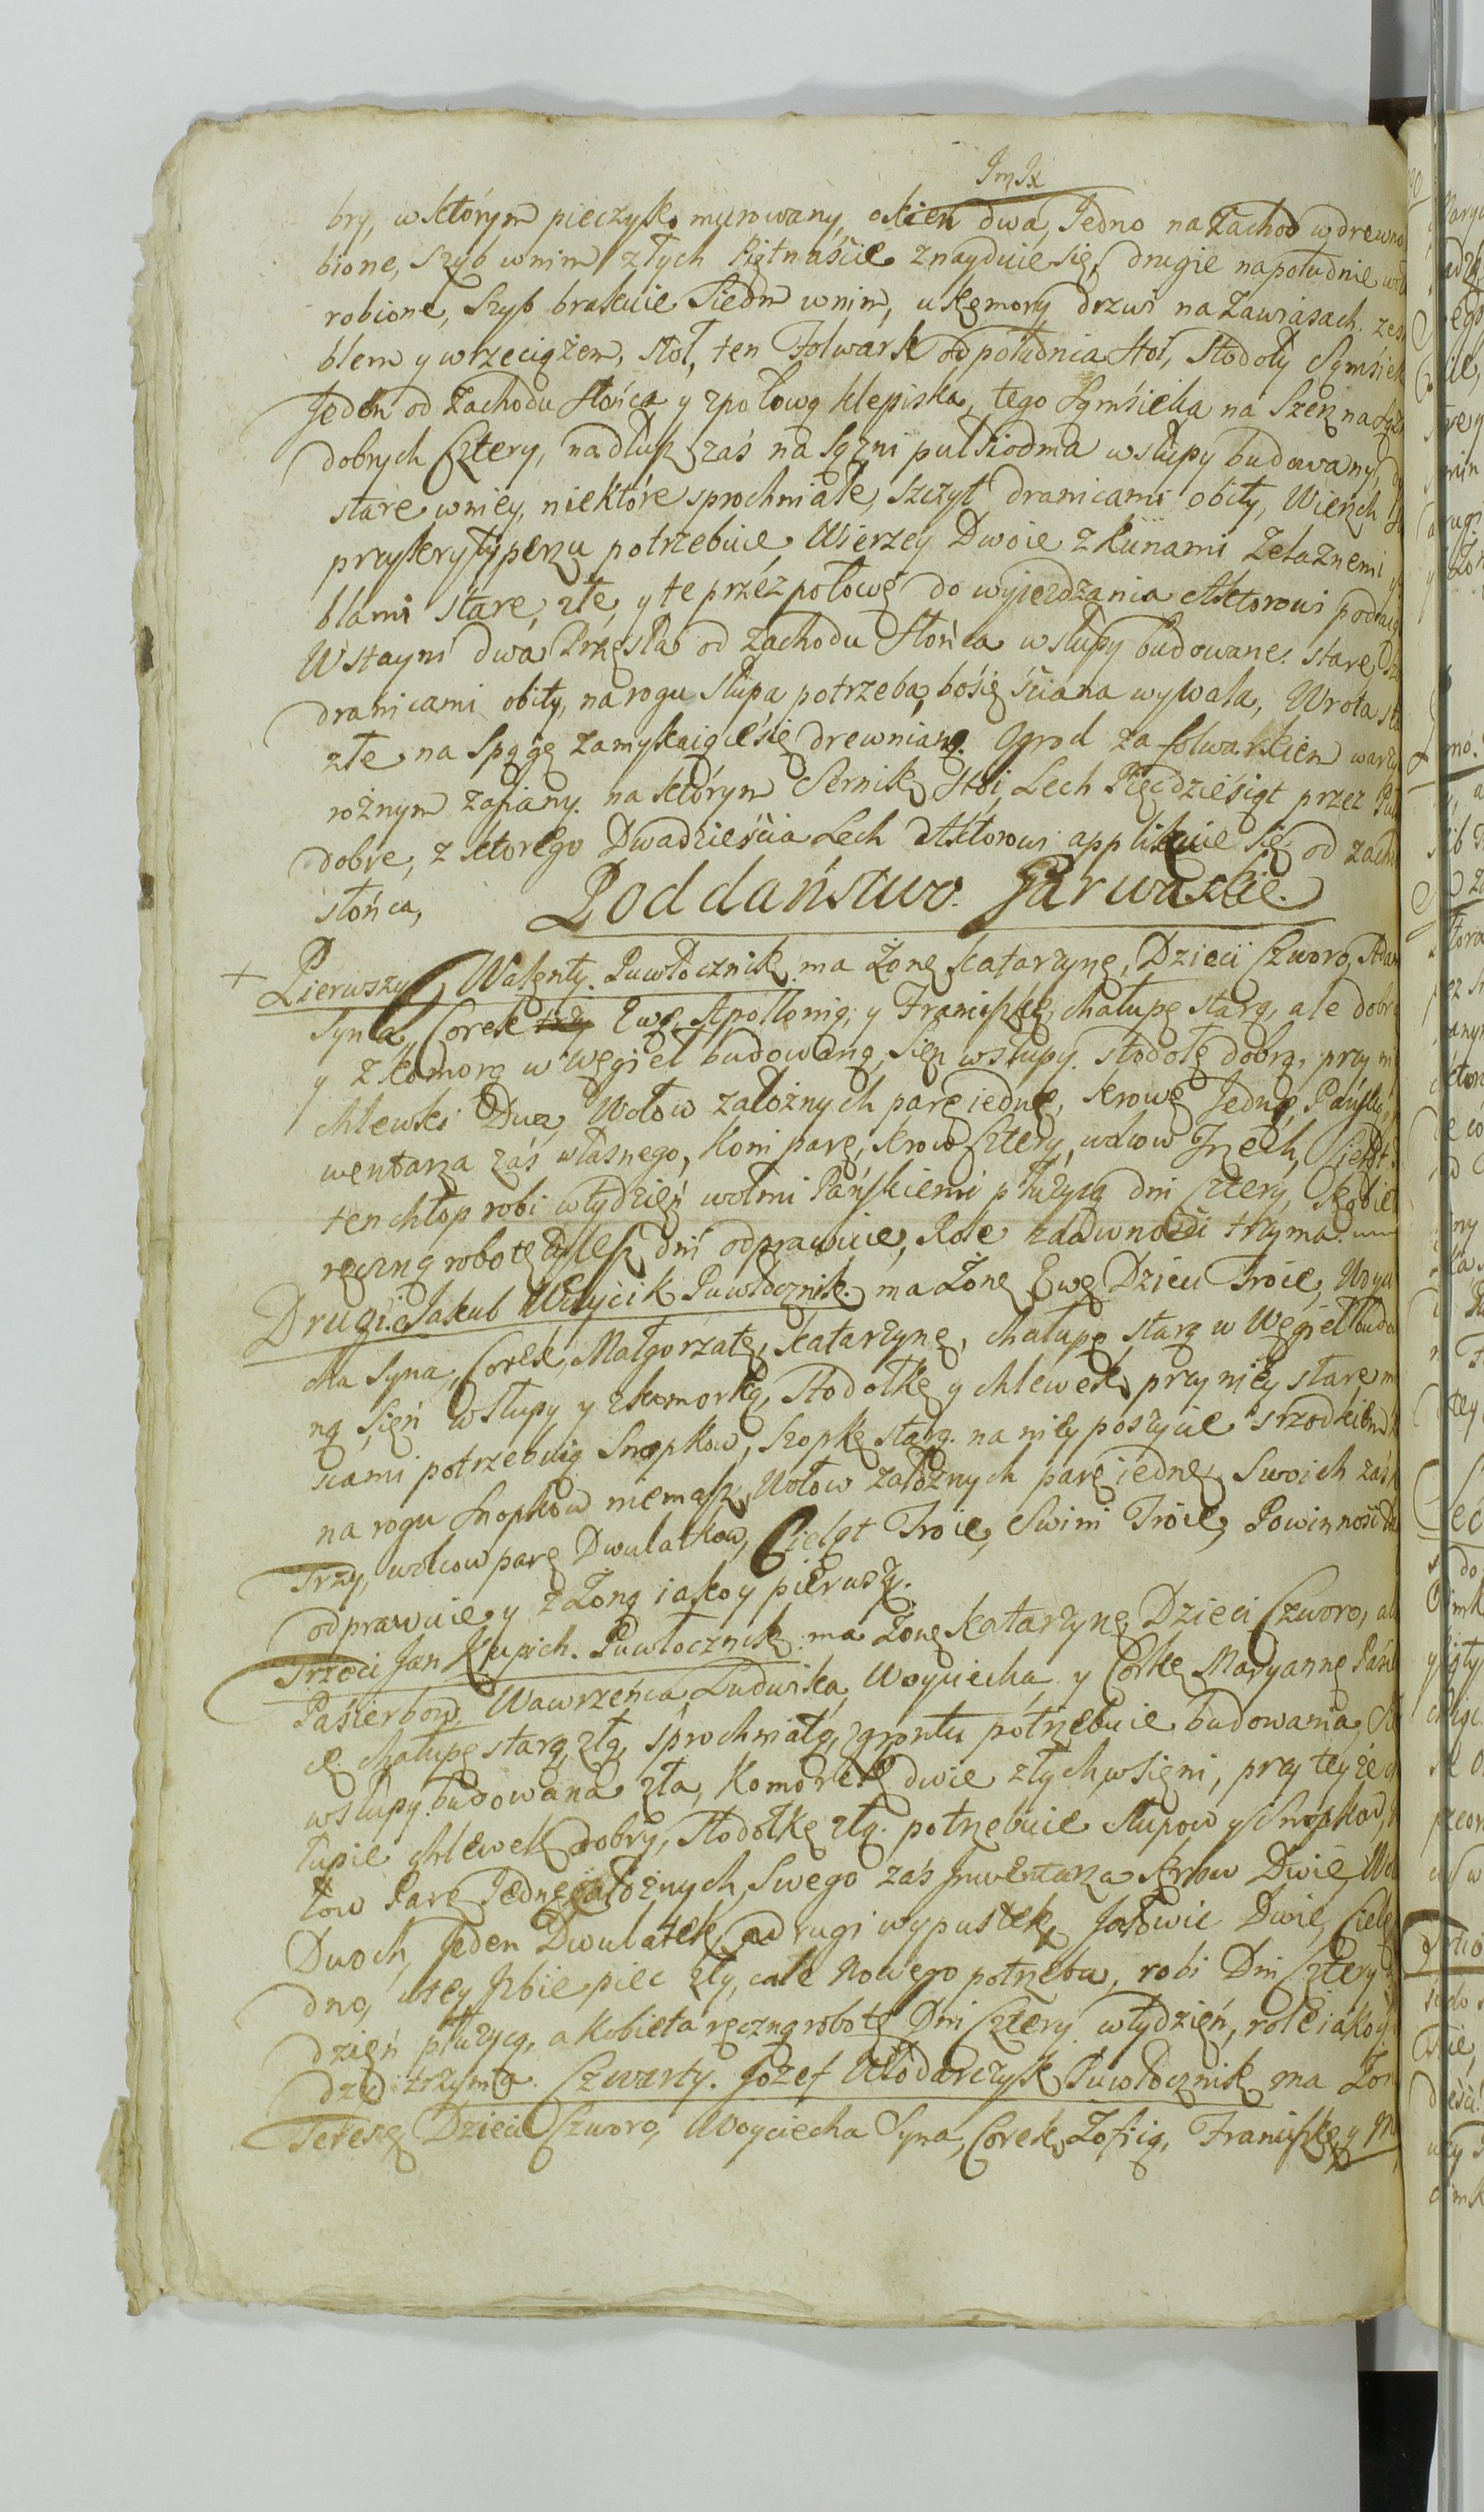 bry, w którym pieczysko murowany, okien dwa, Jedno na Zachod w drewno
bione, szyb w nim złych Piętnaście znayduie się, drugie na południe
robione, Szyb brakuie Siedm w nim, u komory drzwi na Zawiasach
blem y wrzeciążem, stoł, ten Folwark od południa stoi, Stodoły Sąmsiek
Jeden od Zachodu słońca y z połową klepiska, tego Sąmsieka na Szerz na sąż
dobrych Cztery, na dłusz zaś na sążni pułsiodma w słupy budowany,
stare w niey, niektóre sprochniałe, szczyt dranicami obity, Wierzch
przykryty perzu potrzebuie, Wierzey Dwoie z Kunami Żelaznemi y
blami stare, złe, y te przez połowę do wyjezdzania Aktorowi
W stayni dwa Przęsła od Zachodu Słońca w słupy budowane. stare
dranicami obity, na rogu Słupa potrzeba, bo się ściana wywala, Wrota
złe na Spągę zamykaiące się drewnianą. Ogrod za folwarkiem warzy
rożnym zasiany. na którym Sernik stoi, Lech Pięcdziesiąt przez
dobre, z ktorego Dwadzieścia Lech Aktorowi applikuie się od zacho
słońca,
Poddaństwo. Garwackie.
+ Pierwszy, Walenty. Puwłocznik. ma Żonę Katarzynę, Dzieci Czworo, Adam
Syna, Corek trzy Ewę, Apollonią, y Franciszkę, chałupę starą, ale dobrą
y z komorą w węgieł budowaną, Sien w słupy. stodołę dobrą, przy ni
chlewki Dwa, Wołow założnych parę iednę, krowę Jednę, Pańsk
wentarza zaś własnego, Koni parę, krow Cztery, wołow Trzech, Cieląt
ten chłop robi w tydzień wołmi Pańskiemi płużycą dni Cztery, kobie
ręczną robotę tylesz dni odprawuie, Role zdawności trzyma.
Drugi. Jakub Woycik Puwłocznik. ma Żonę Ewę, Dzieci Troie, Woyci
cha Syna, Corek, Małgorzatę, Katarzynę, chałupę starą w Węgieł budo
ną, sień w słupy y z komorką, Stodołkę y chlewek przy niey stare
scami potrzebuią Snopkow, szopkę starą. na niey poszycie srzodkiem
na rogu Snopkow niemasz, Wołow założnych parę iednę, Swoich zaś
Trzy, wołcow parę Dwulatkow, Cieląt Troie, Swini Troie, Powinność
odprawuie y z Żoną iako y pierwszy.
Trzeci Jan Krupich. Puwłocznik. ma Żonę Katarzynę, Dzieci Czworo, al
Pasierbow, Wawrzeńca, Ludwika, Woyciecha y Corkę Maryannę Pasie
cę. chałupę starą, złą, sprochniałą, z gruntu potrzebuie budowania,
w słupy. budowana zła, Komorek dwie złych w sieni, przy teyże
łupie chlewek dobry, Stodołkę złą. potrzebuie słupow y Snopkow,
łow Parę Jednę założnych, Swego zaś Jnwentarza krow Dwie, Wo
Dwoch, Jeden Dwulatek, a drugi wypustek, Jałowic Dwie, Ciele
dno, w tey Jzbie piec zły, cale Nowego potrzeba, robi Dni Cztery
dzień płużycą, a kobieta ręczną robotę Dni Cztery w tydzień, role iako y
dzy trzyma. Czwarty. Jozef Włodarczyk Puwłocznik ma Żon
Teresę Dzieci Czworo, Woyciecha Syna, Corek, Zofią, Franciszkę, y M